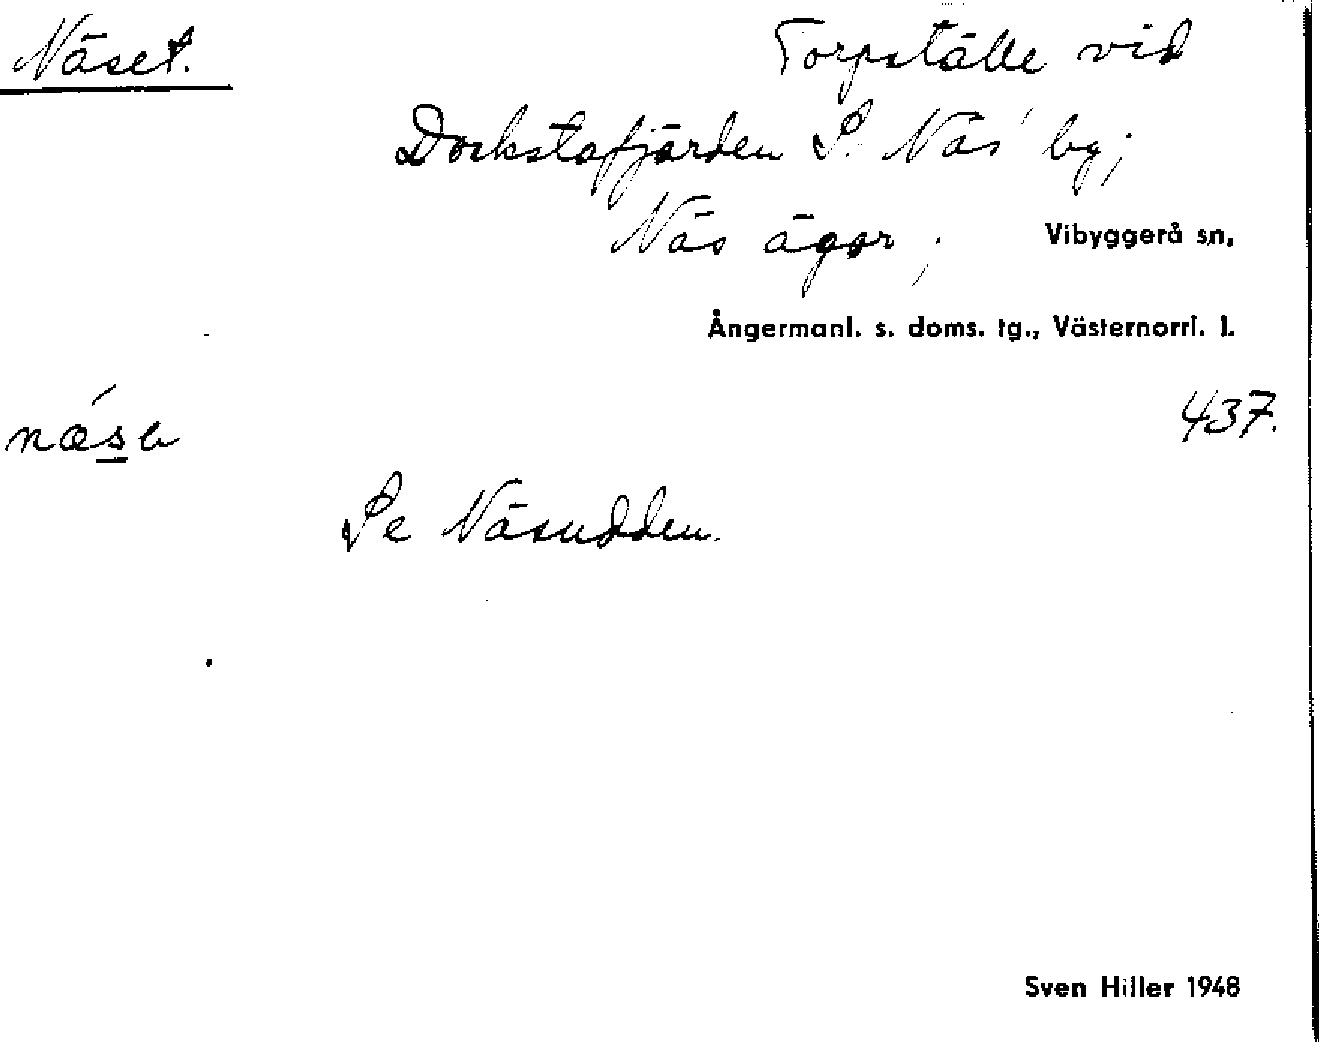 Näset.
Torpställe vid
Dockstafjärden S. Näs by;
Näs ägor;
Vibyggerå sn,
Ångermanl. s. doms. tg., Västernorrl. l.
437.
Se Näsudden.
Sven Hiller 1948